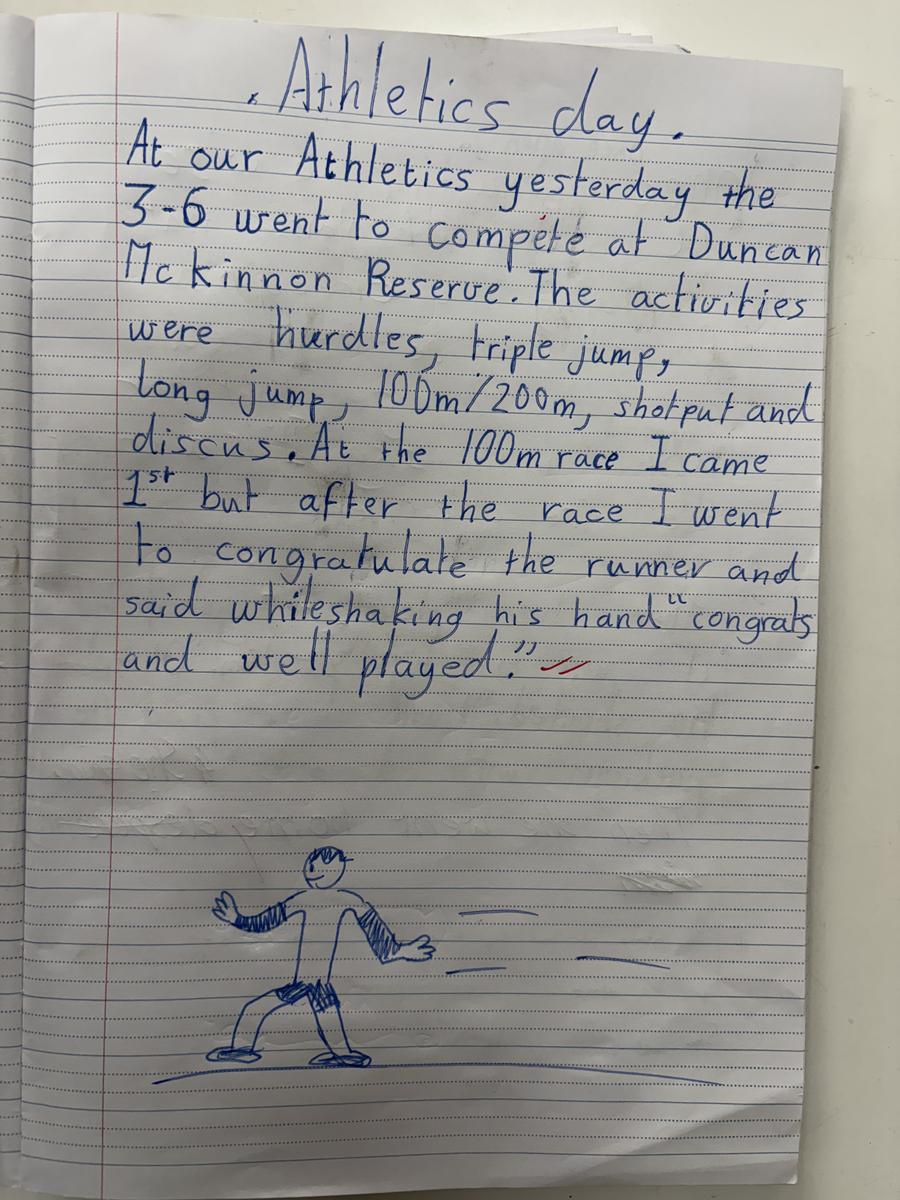 Athletics day.
At our Athletics yesterday the
3-6 went to compete at Duncan
Mckinnon Reserve. The activities
were hurdles, triple jump,
long jump, 100m/200m, shotput and
discus. At the 100m race I came
1st but after the race I went
to congratulate the runner and
said whileshaking his hand "congrats
and well played."